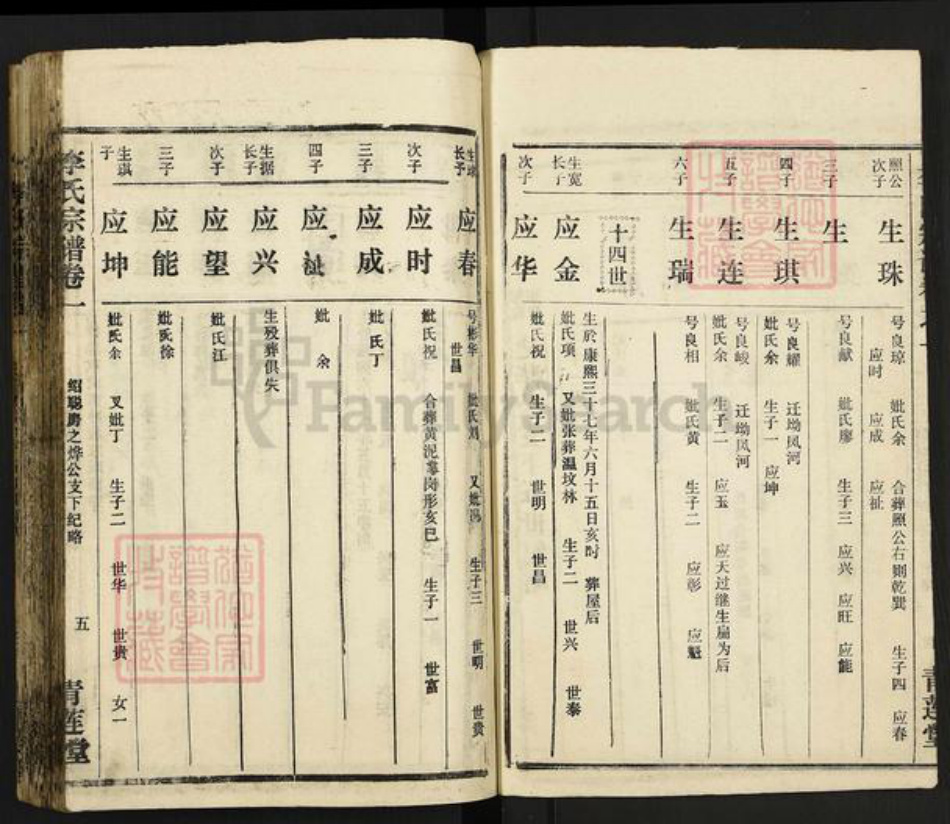 照公
次子
生珠
号良琼 妣氏余 合葬照公右则乾巽 生子四 应春
应时 应成 应祉
三子
生
号良献 妣氏廖 生子三 应兴 应旺 应能
四子
生琪
号良耀 迁坳凤河
妣氏余 生子一 应坤
五子
生连
号良峻 迁坳凤河
妣氏余 生子二 应玉 应天过继生扁为后
六子
生瑞
号良相 妣氏黄 生子二 应彰 应魁
十四世
生宽
长子
应金
生於康熙三十七年六月十五日亥时 葬屋后
妣氏项 又妣张葬温坟林 生子二 世兴 世泰
次子
应华
妣氏祝 生子二 世明 世昌
生珠
长子
应春
号彬华 妣氏刘 又妣 生子三 世明 世贵
世昌
次子
应时
妣氏祝 合葬黄泥 岗形亥巳 生子一 世富
三子
应成
妣氏丁
四子
应祉
妣 余
生据
长子
应兴
生殁葬俱失
次子
应望
妣氏江
三子
应能
妣氏徐
生琪
子
应坤
妣氏余 又妣丁 生子二 世华 世贵 女一
李氏宗谱卷一
绍聪房之烨公支下纪略
五
青莲堂
青莲堂
FamilySearch